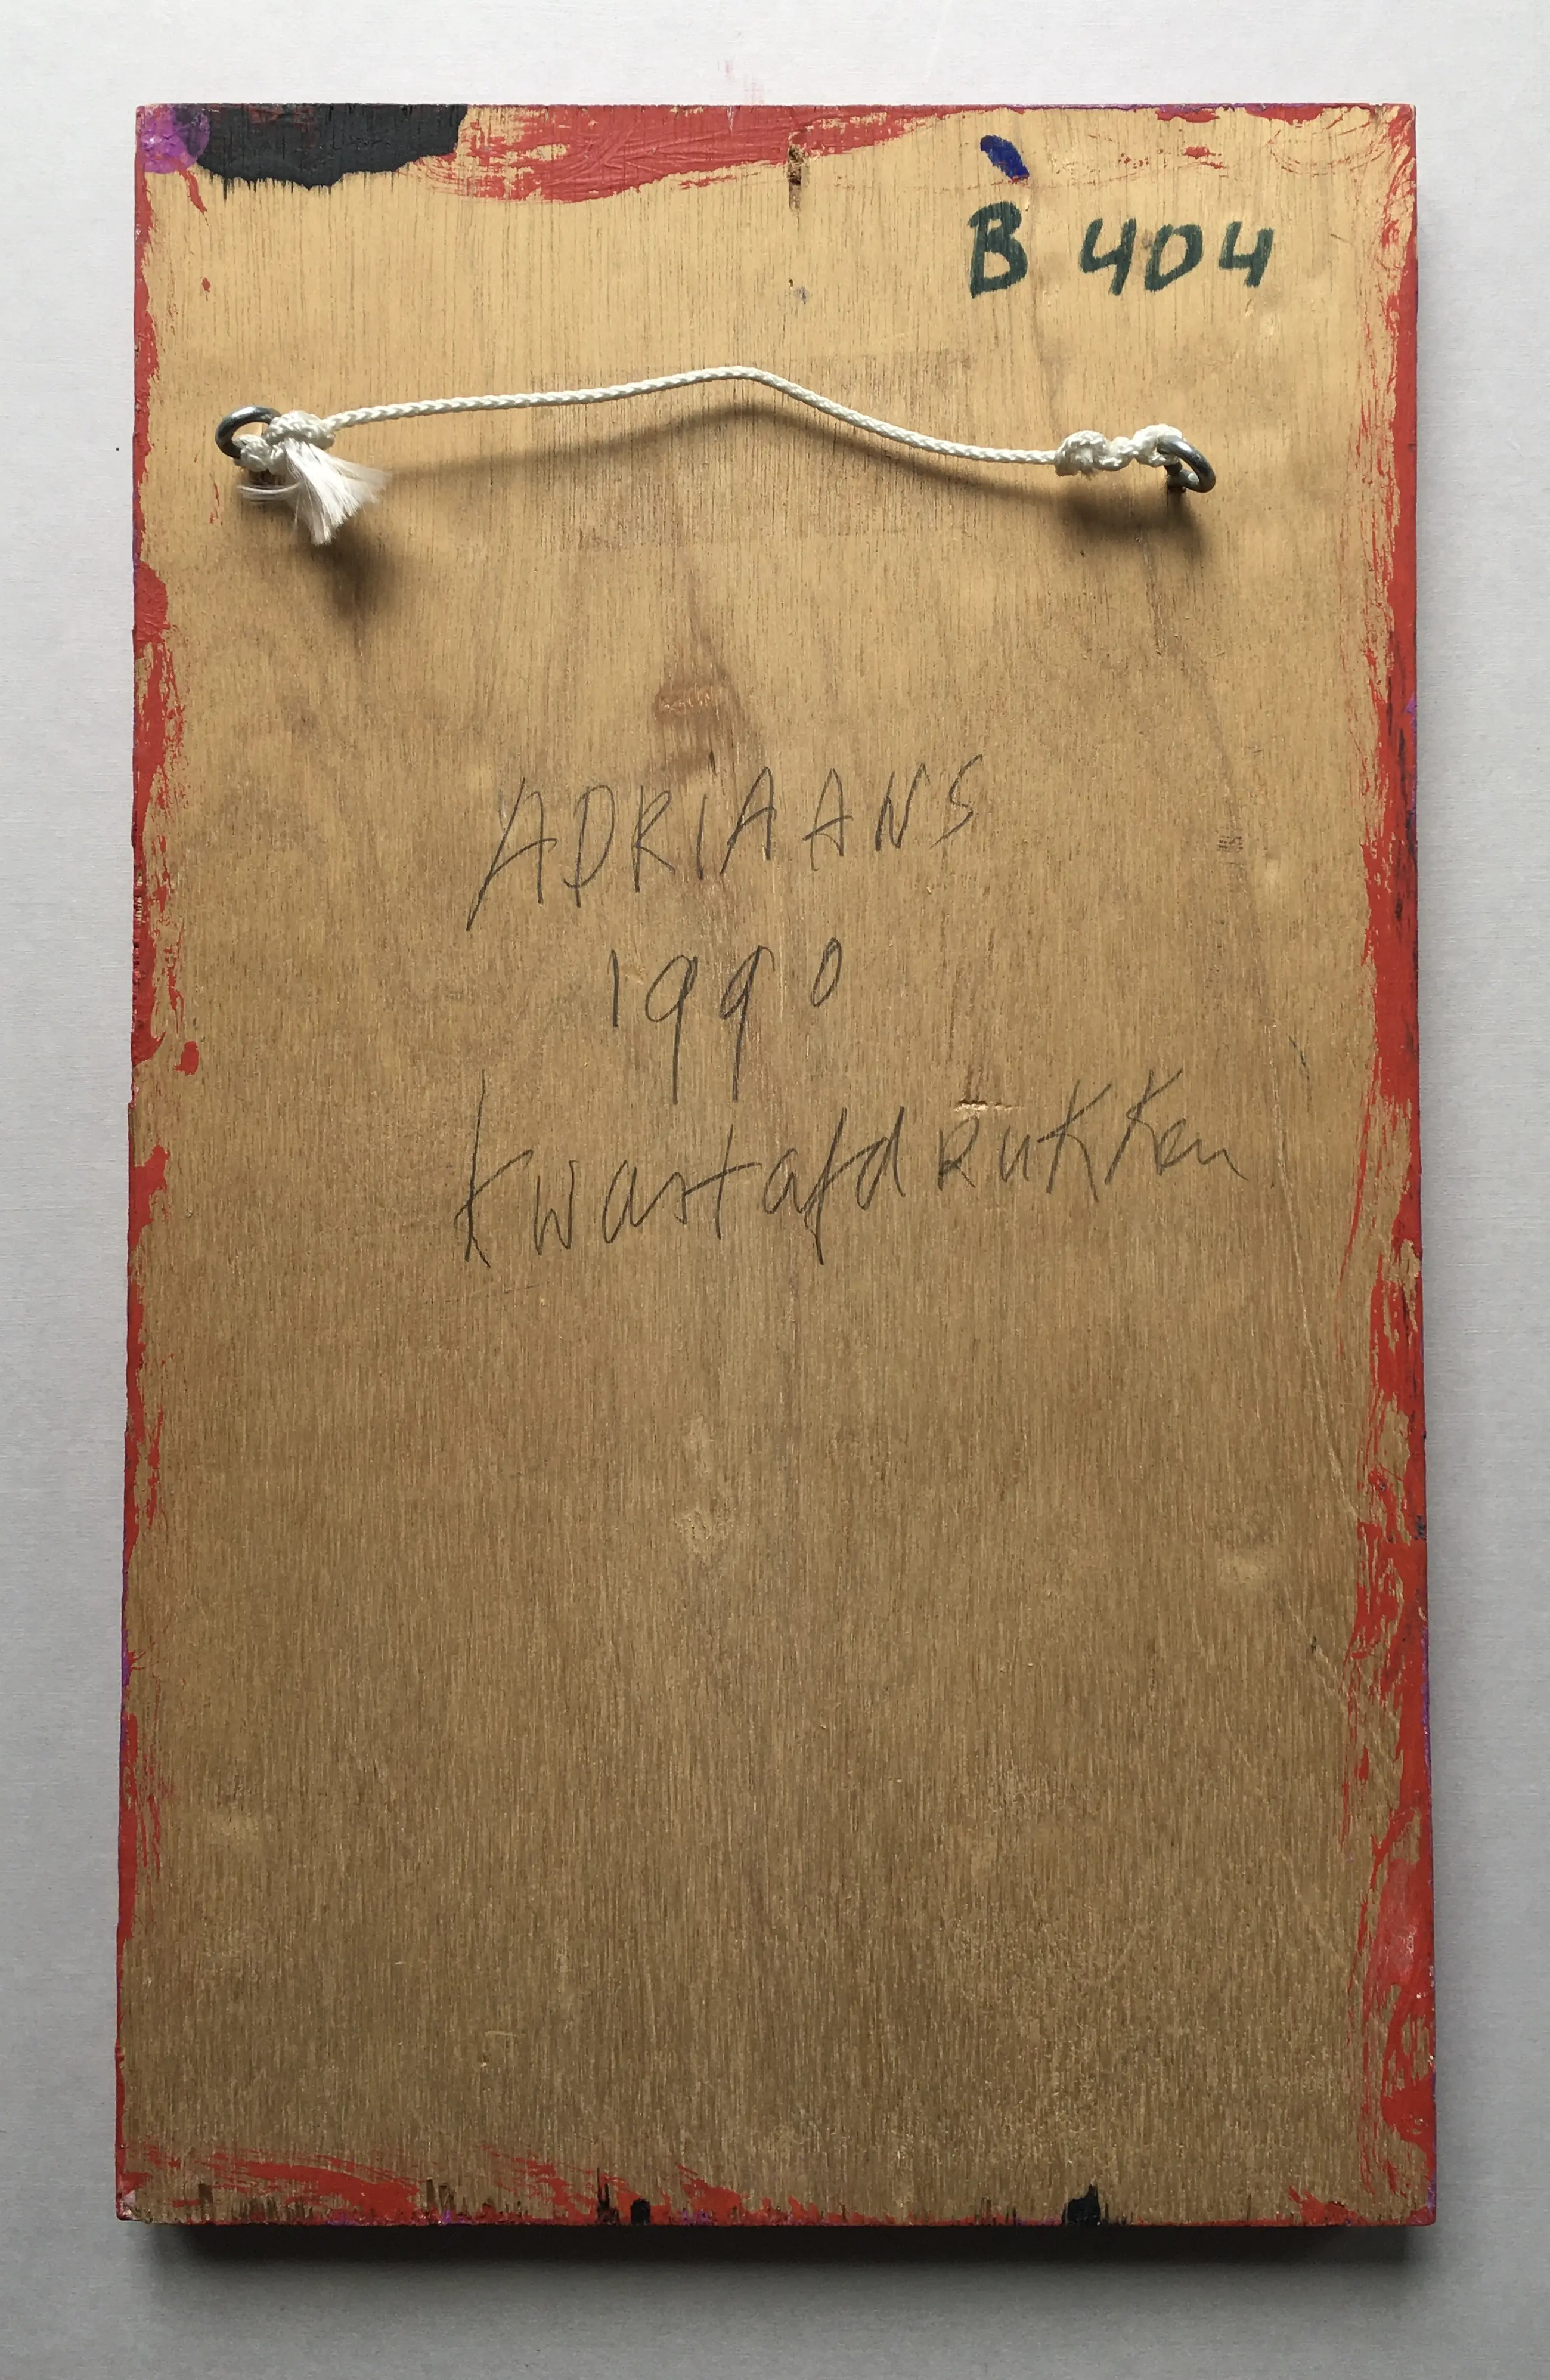 B 404
ADRIAANS
1990
kwastafdRuKKen